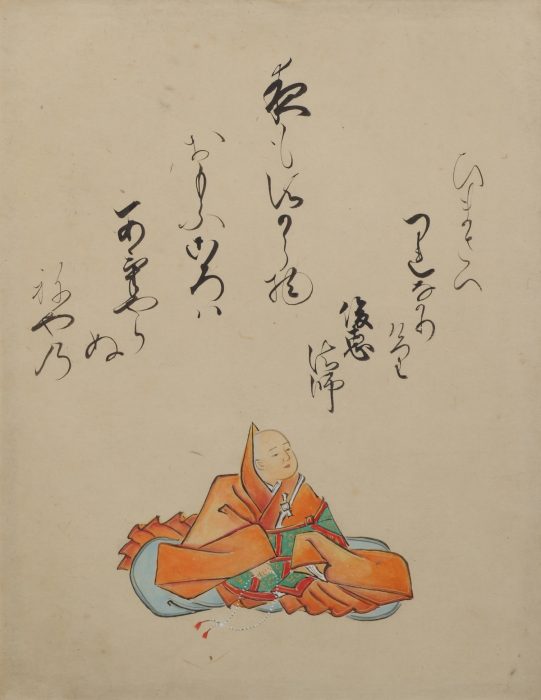 俊恵
法師
夜もすから物
おもふころは
あけやら
ぬ
ねやの
ひまさへ
つれなかり
けり